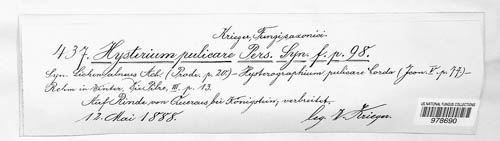 Krieger, Fungi saxonici.
437. Hysterium pulicare Pers. Syn. f. p. 98.
Syn. Lichen alneus Ach. (Prodr. p. 20) – Hysterographium pulicare Corda (Icon. V. p. 77) –
Rehm in Winter, Die Pilze, III. p. 13.
Auf Rinde von Quercus bei Königstein, verbreitet.
12. Mai 1888. leg. W. Krieger.
US NATIONAL FUNGUS COLLECTIONS
978690